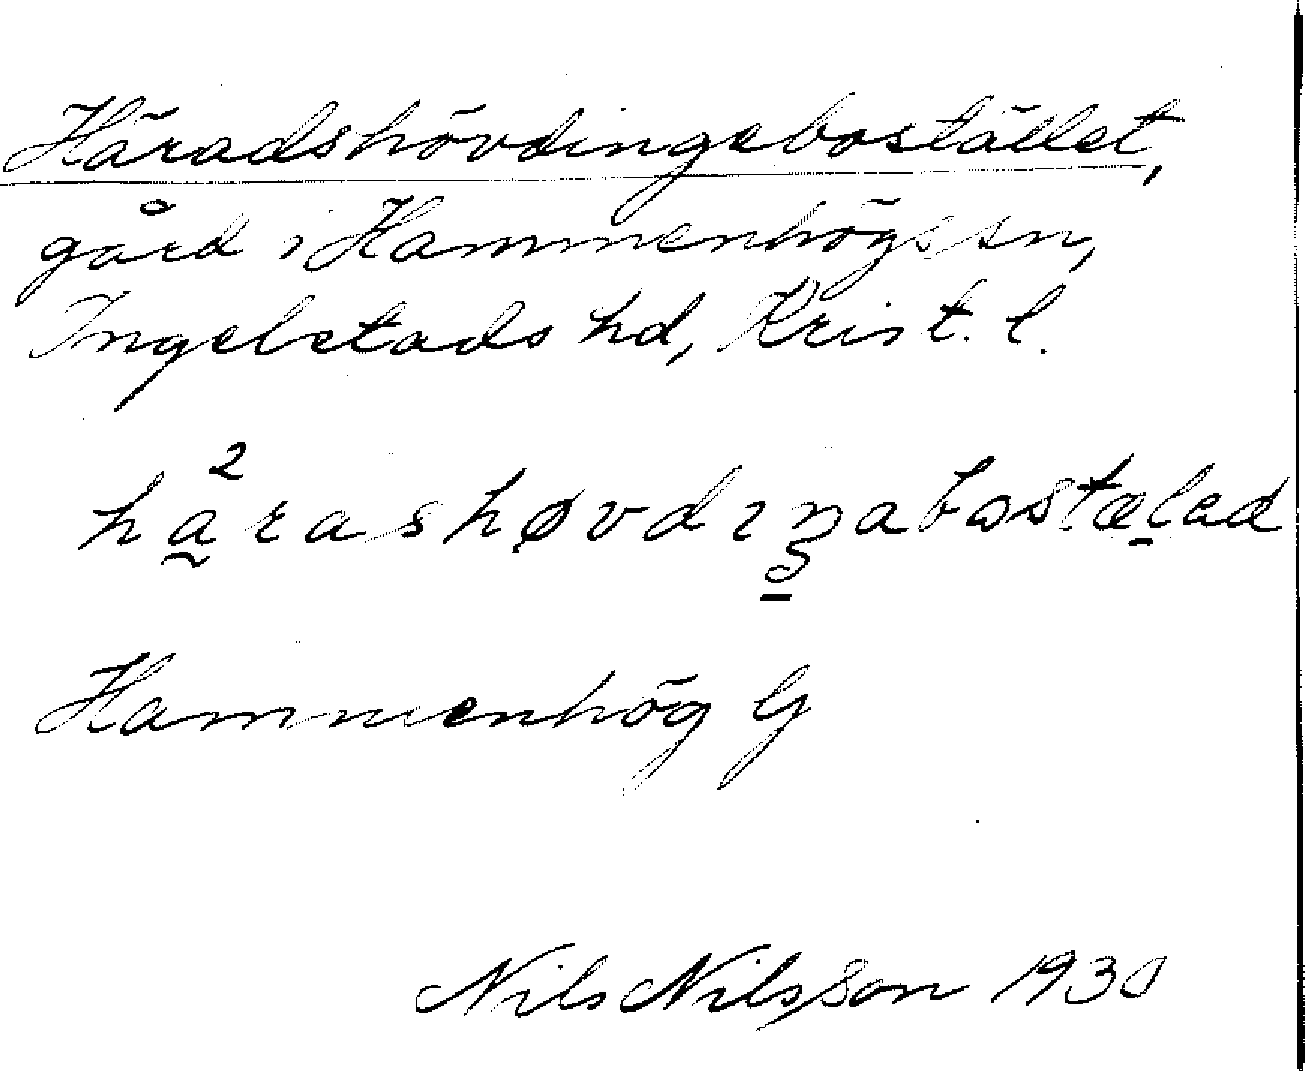 Häradshövdingebostället,
gård i Hammenhögs sn,
Ingelstads hd, Krist. l.
2
härashøvdıŋabostælad
Hammenhög G
Nils Nilsson 1930